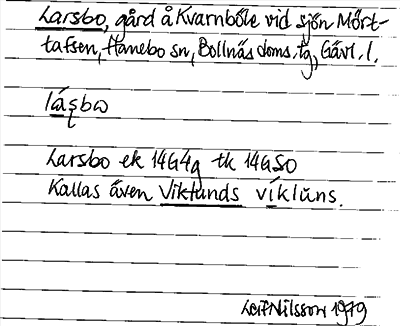 Larsbo, gård å Kvarnböle vid sjön Mört-
tafsen, Hanebo sn, Bollnäs doms.tg, Gävl. l.
Larsbo ek 14G4g tk 14GSO
Kallas även Viklunds víklūns.
Leif Nilsson 1979